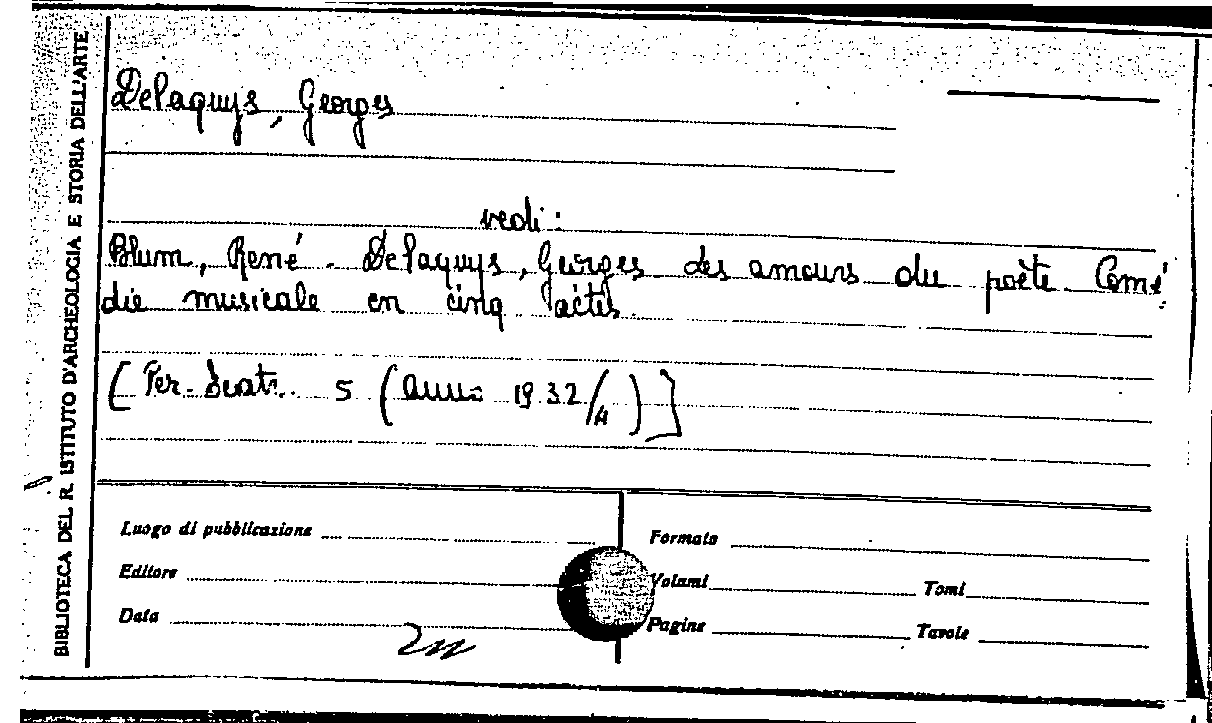 BIBLIOTECA DEL R. ISTITUTO D'ARCHEOLOGIA E STORIA DELL'ARTE
Delaquys, Georges
vedi:
Blum, René - Delaquys, Georges des amours du poète Comé
die musicale en cinq actes.
[Per. Teatr. 5 (anno 1932/4)]
Luogo di pubblicazione
Formato
Editore
Volumi Tomi
Data
Pagine Tavole